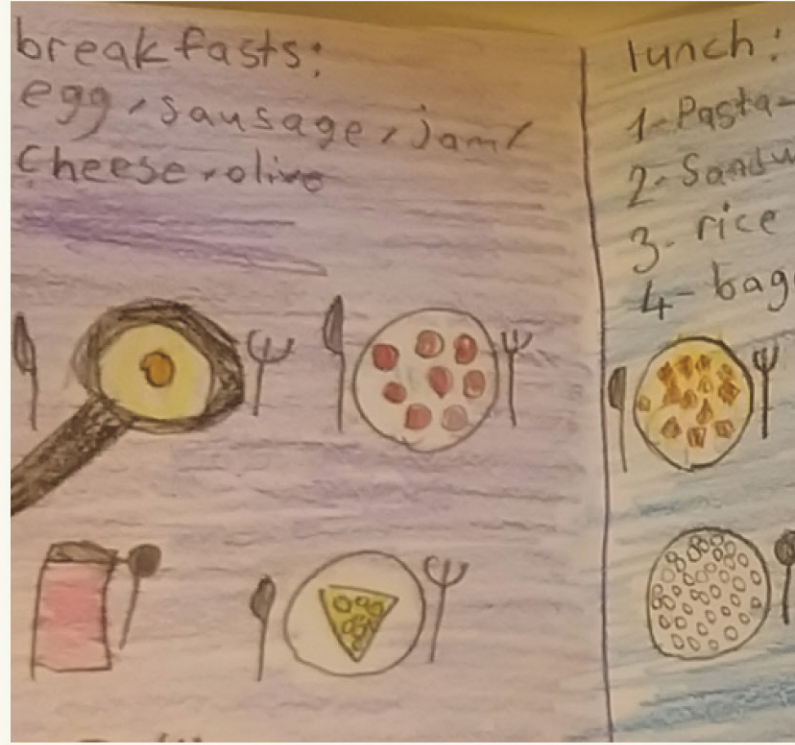 breakfasts:
egg, sausage, jam,
Cheese, olive
lunch:
1- Pasta-
2- Sandw
3- rice
4- bag